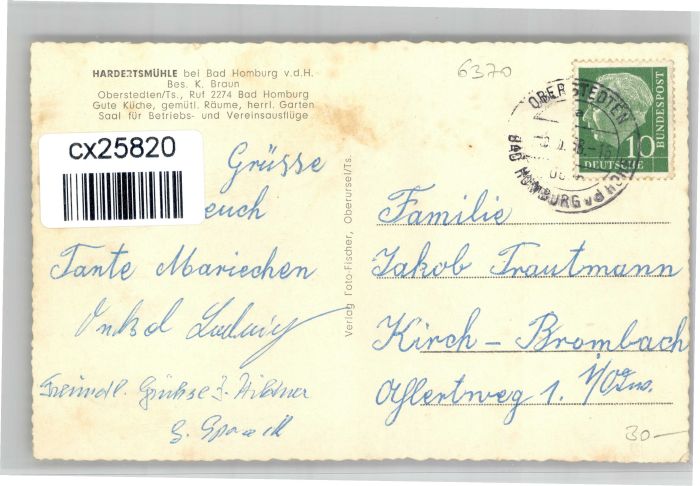 HARDERTSMÜHLE bei Bad Homburg v.d.H.
Bes. K. Braun
Oberstedten/Ts., Ruf 2274 Bad Homburg
Gute Küche, gemütl. Räume, herrl. Garten
Saal für Betriebs- und Vereinsausflüge
6370
OBERSTEDTEN
BAD HOMBURG v d HÖHE
10
DEUTSCHE
BUNDESPOST
cx25820
Grüsse
euch
Tante Mariechen
Onkel Ludwig
Grüsse
Verlag Foto-Fischer, Oberursel/Ts.
Familie
Jakob Trautmann
Kirch - Brombach
Ahlertweg 1. i/Odw.
30-